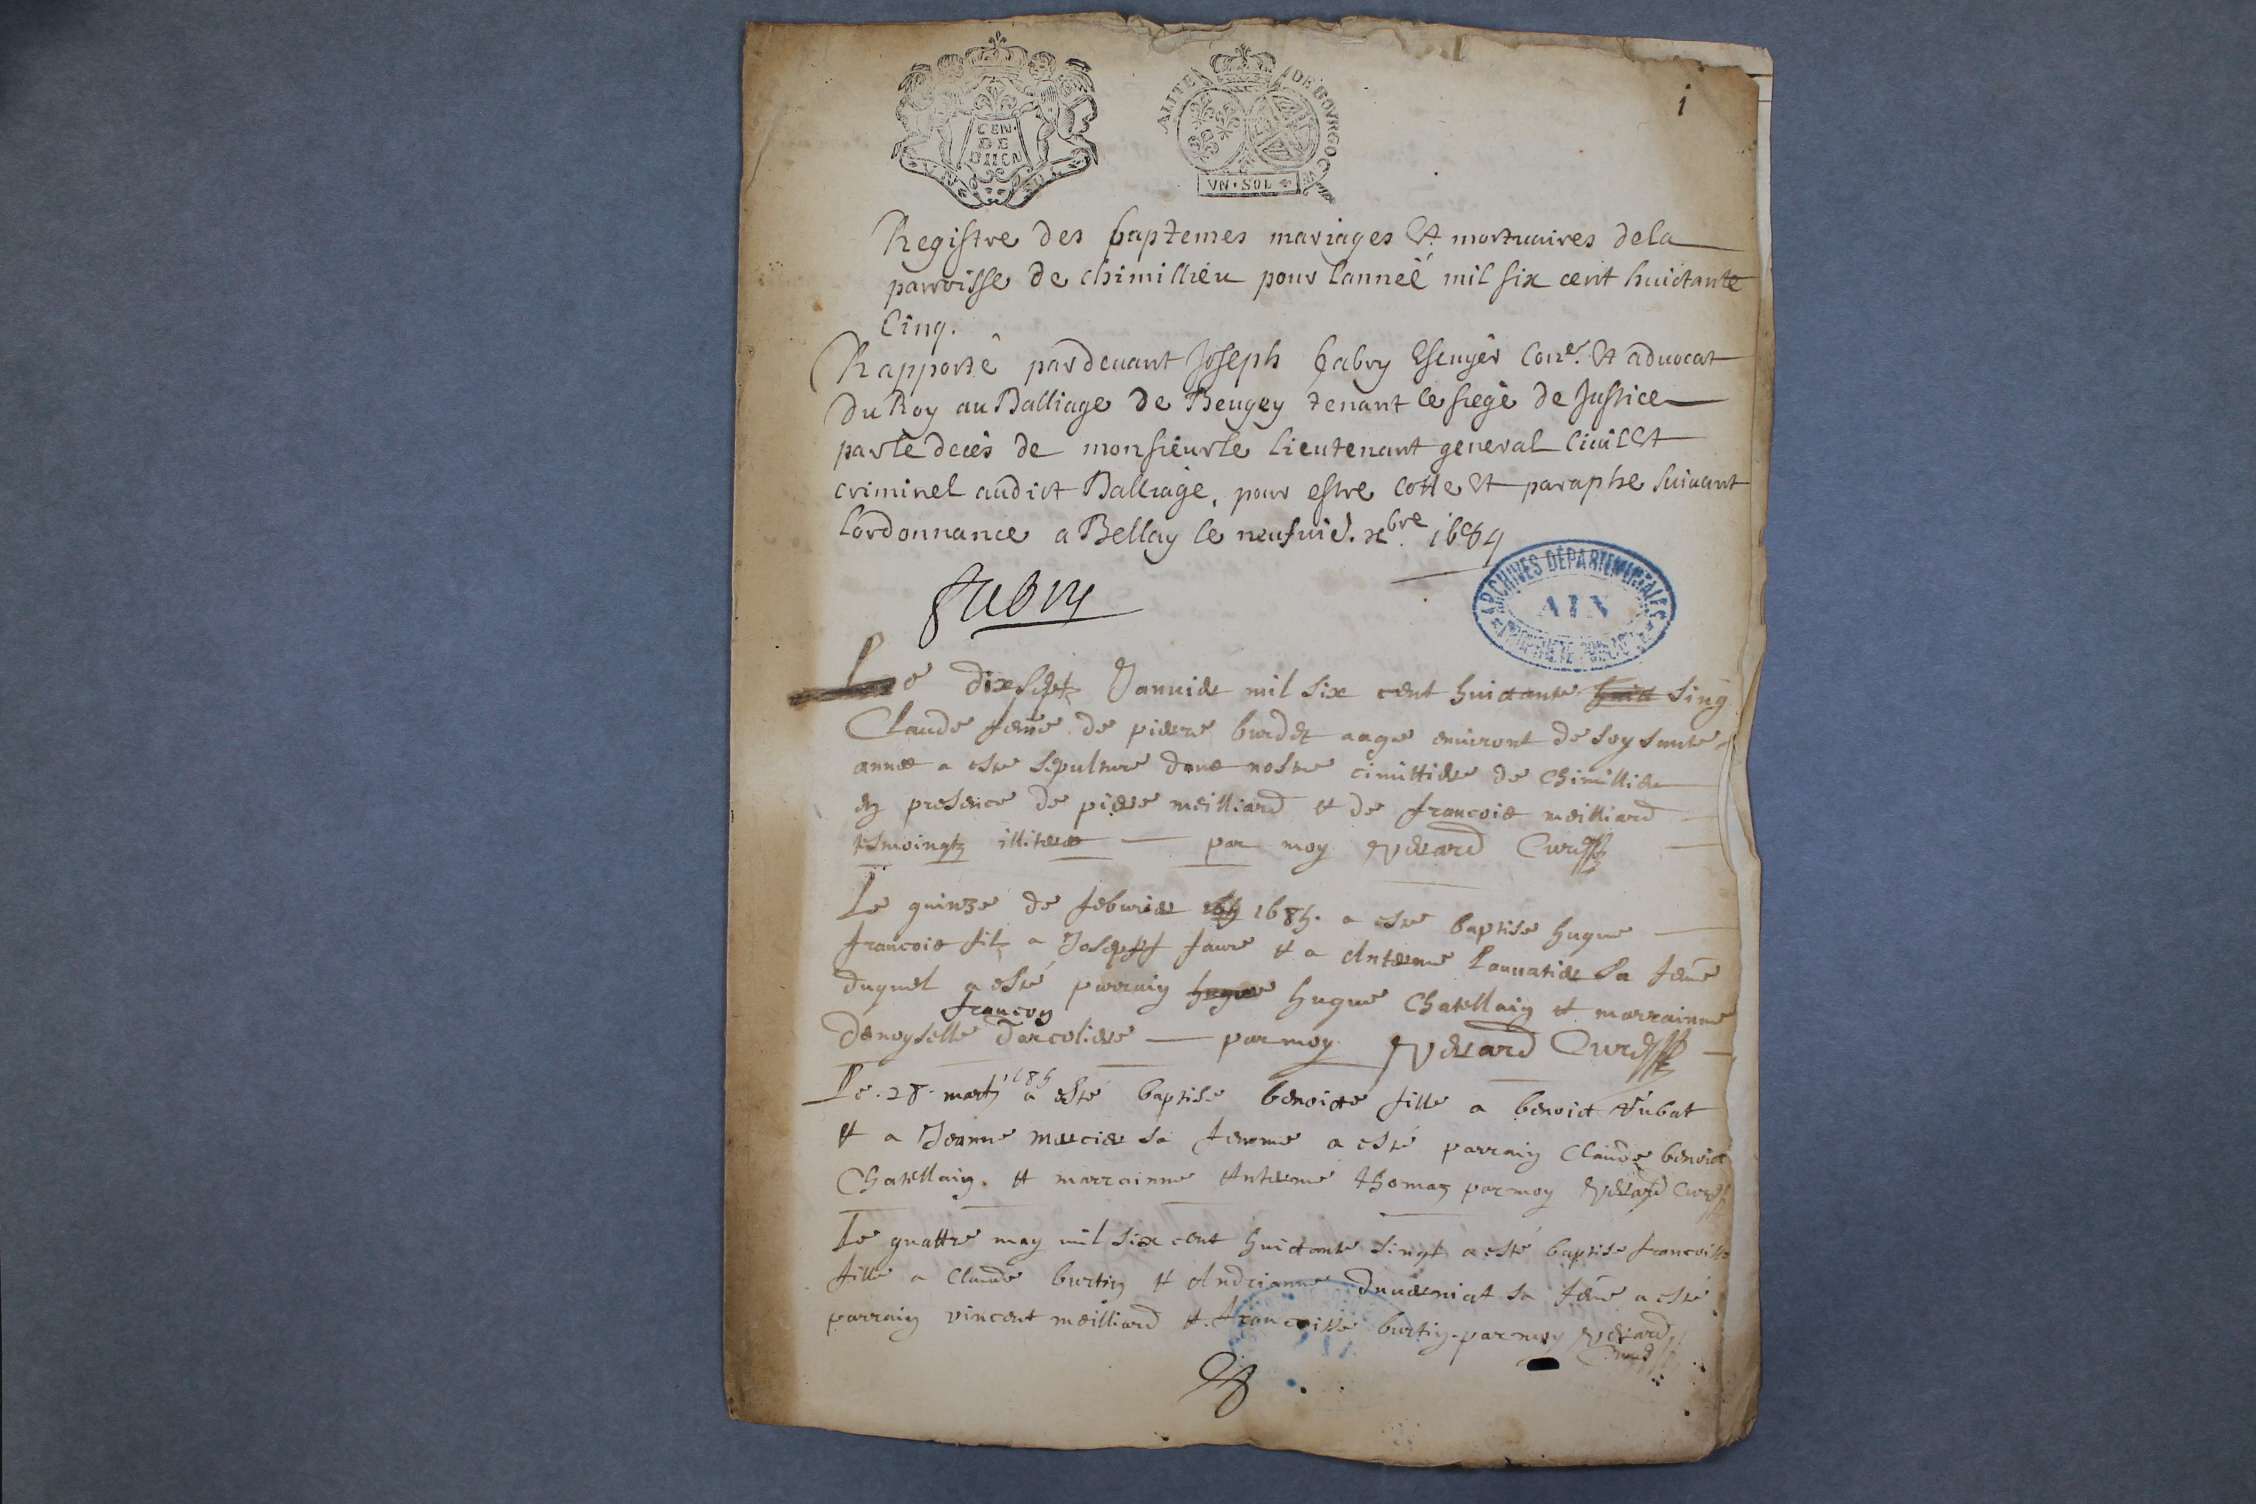 GEN.
DE
DIION
ALITE DE BOVRGOG
VN•SOL
1
Registre des baptemes mariages et mortuaires de la
parroisse de chimillieu pour lanneé mil six cent huictante
Cinq.
Rapporté pardevant Joseph fabry Escuyer Coner. et advocat
du Roy au Balliage de Beugey tenant le siege de Justice
par le deces de monsieur le lieutenant general Civil et
criminel audict Balliage, pour estre cotte et paraphe suivant
lordonnance a Bellay le neufvie. xbre. 1684
fabry
ARCHIVES DÉPARTEMENTALES
AIN
PROPRIÉTÉ PUBLIQUE
Le dix sept Janvier mil six cent huictante huict sinq
Claude feme de pierre burdet aage environt de soysante
annee a este sepulture dans nostre cimittiere de Chimillieu
en presence de piere meilliard et de francois meilliard
tesmoingtz illiteres par moy Curé
Le quinze de febvrier 1685. a este baptise hugue
francois filz a Joseph favre et a Anterme sa feme
duquel a esté parrain hugue hugue Chatellain et marrainne
francoy
damoyselle darcoliere par moy Curé
Le .28. martz 1685 a esté baptise benoicte fille a benoict
et a Jeanne mercier sa femme a esté parrain Claude benoict
Chatellain. et marrainne Anterme thomaz par moy Curé
Le quattre may mil six cent huictante singt a esté baptise francoisse
fille a Claude burtin et Andrianne sa feme a esté
parrain vincent meilliard et. francoisse burtin. par moy
Curé